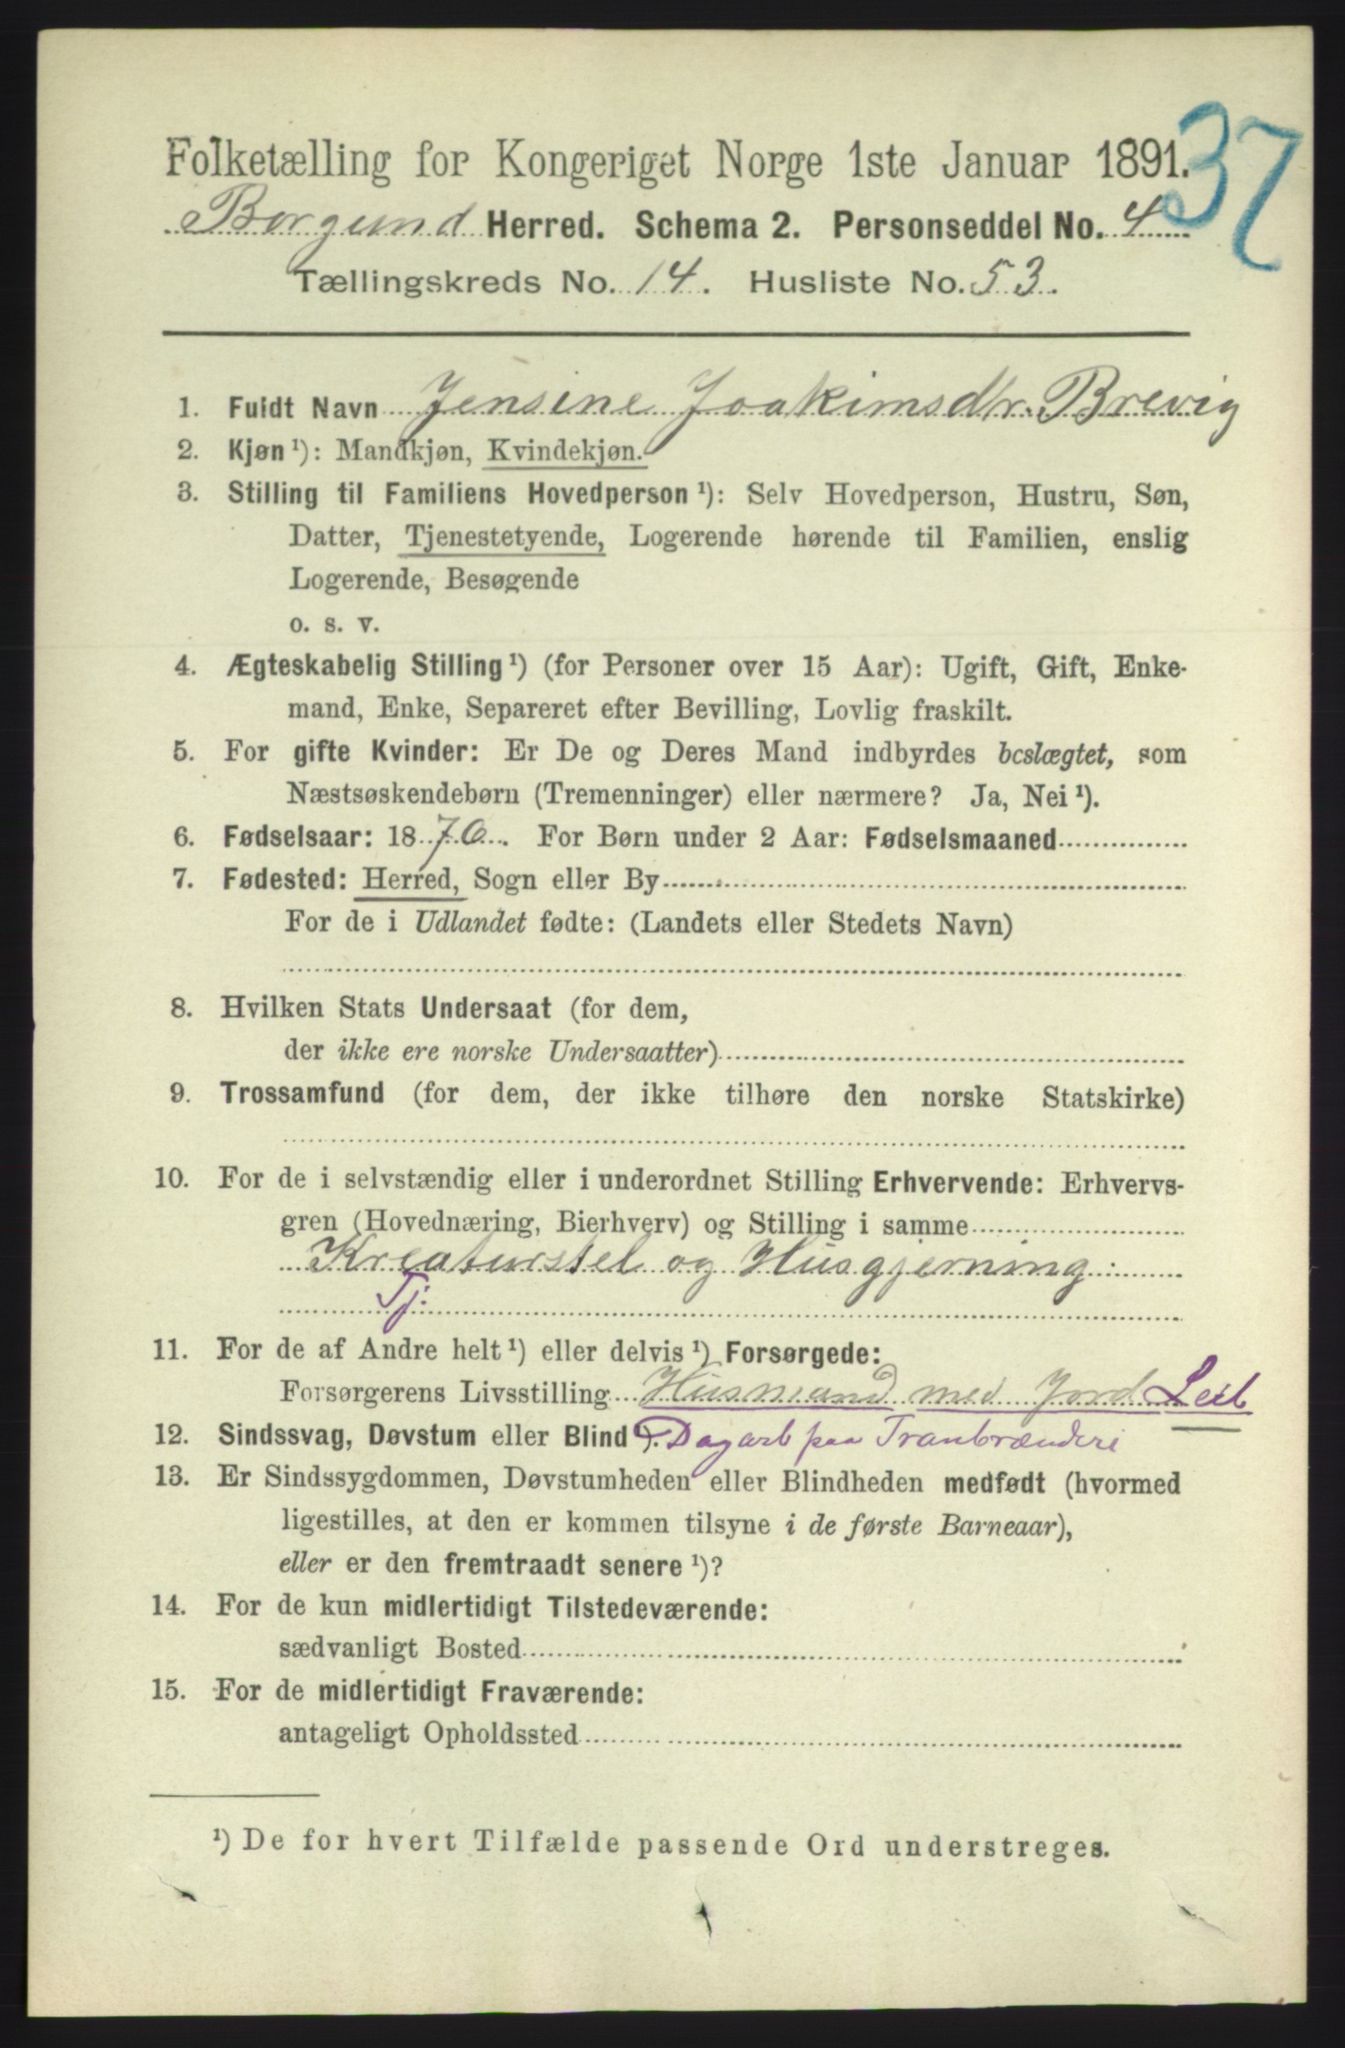 37
Folketælling for Kongeriget Norge 1ste Januar 1891.
Borgund Herred. Schema 2. Personseddel No. 4
Tællingskreds No. 14. Husliste No. 53.
1. Fuldt Navn Jensine Joakimsdtr. Brevig
2. Kjøn ¹): Mandkjøn, Kvindekjøn.
3. Stilling til Familiens Hovedperson ¹): Selv Hovedperson, Hustru, Søn,
Datter, Tjenestetyende, Logerende hørende til Familien, enslig
Logerende, Besøgende
o. s. v.
4. Ægteskabelig Stilling ¹) (for Personer over 15 Aar): Ugift, Gift, Enke-
mand, Enke, Separeret efter Bevilling, Lovlig fraskilt.
5. For gifte Kvinder: Er De og Deres Mand indbyrdes beslægtet, som
Næstsøskendebørn (Tremenninger) eller nærmere? Ja, Nei ¹).
6. Fødselsaar: 1870. For Børn under 2 Aar: Fødselsmaaned
7. Fødested: Herred, Sogn eller By
For de i Udlandet fødte: (Landets eller Stedets Navn)
8. Hvilken Stats Undersaat (for dem,
der ikke ere norske Undersaatter)
9. Trossamfund (for dem, der ikke tilhøre den norske Statskirke)
10. For de i selvstændig eller i underordnet Stilling Erhvervende: Erhvervs-
gren (Hovednæring, Bierhverv) og Stilling i samme
Kreaturstel og Husgjerning.
Tj.
11. For de af Andre helt ¹) eller delvis ¹) Forsørgede:
Forsørgerens Livsstilling Husmand med Jord Leil
12. Sindssvag, Døvstum eller Blind ¹). Dagarb paa Tranbrænderi
13. Er Sindssygdommen, Døvstumheden eller Blindheden medfødt (hvormed
ligestilles, at den er kommen tilsyne i de første Barneaar),
eller er den fremtraadt senere ¹)?
14. For de kun midlertidigt Tilstedeværende:
sædvanligt Bosted
15. For de midlertidigt Fraværende:
antageligt Opholdssted
¹) De for hvert Tilfælde passende Ord understreges.